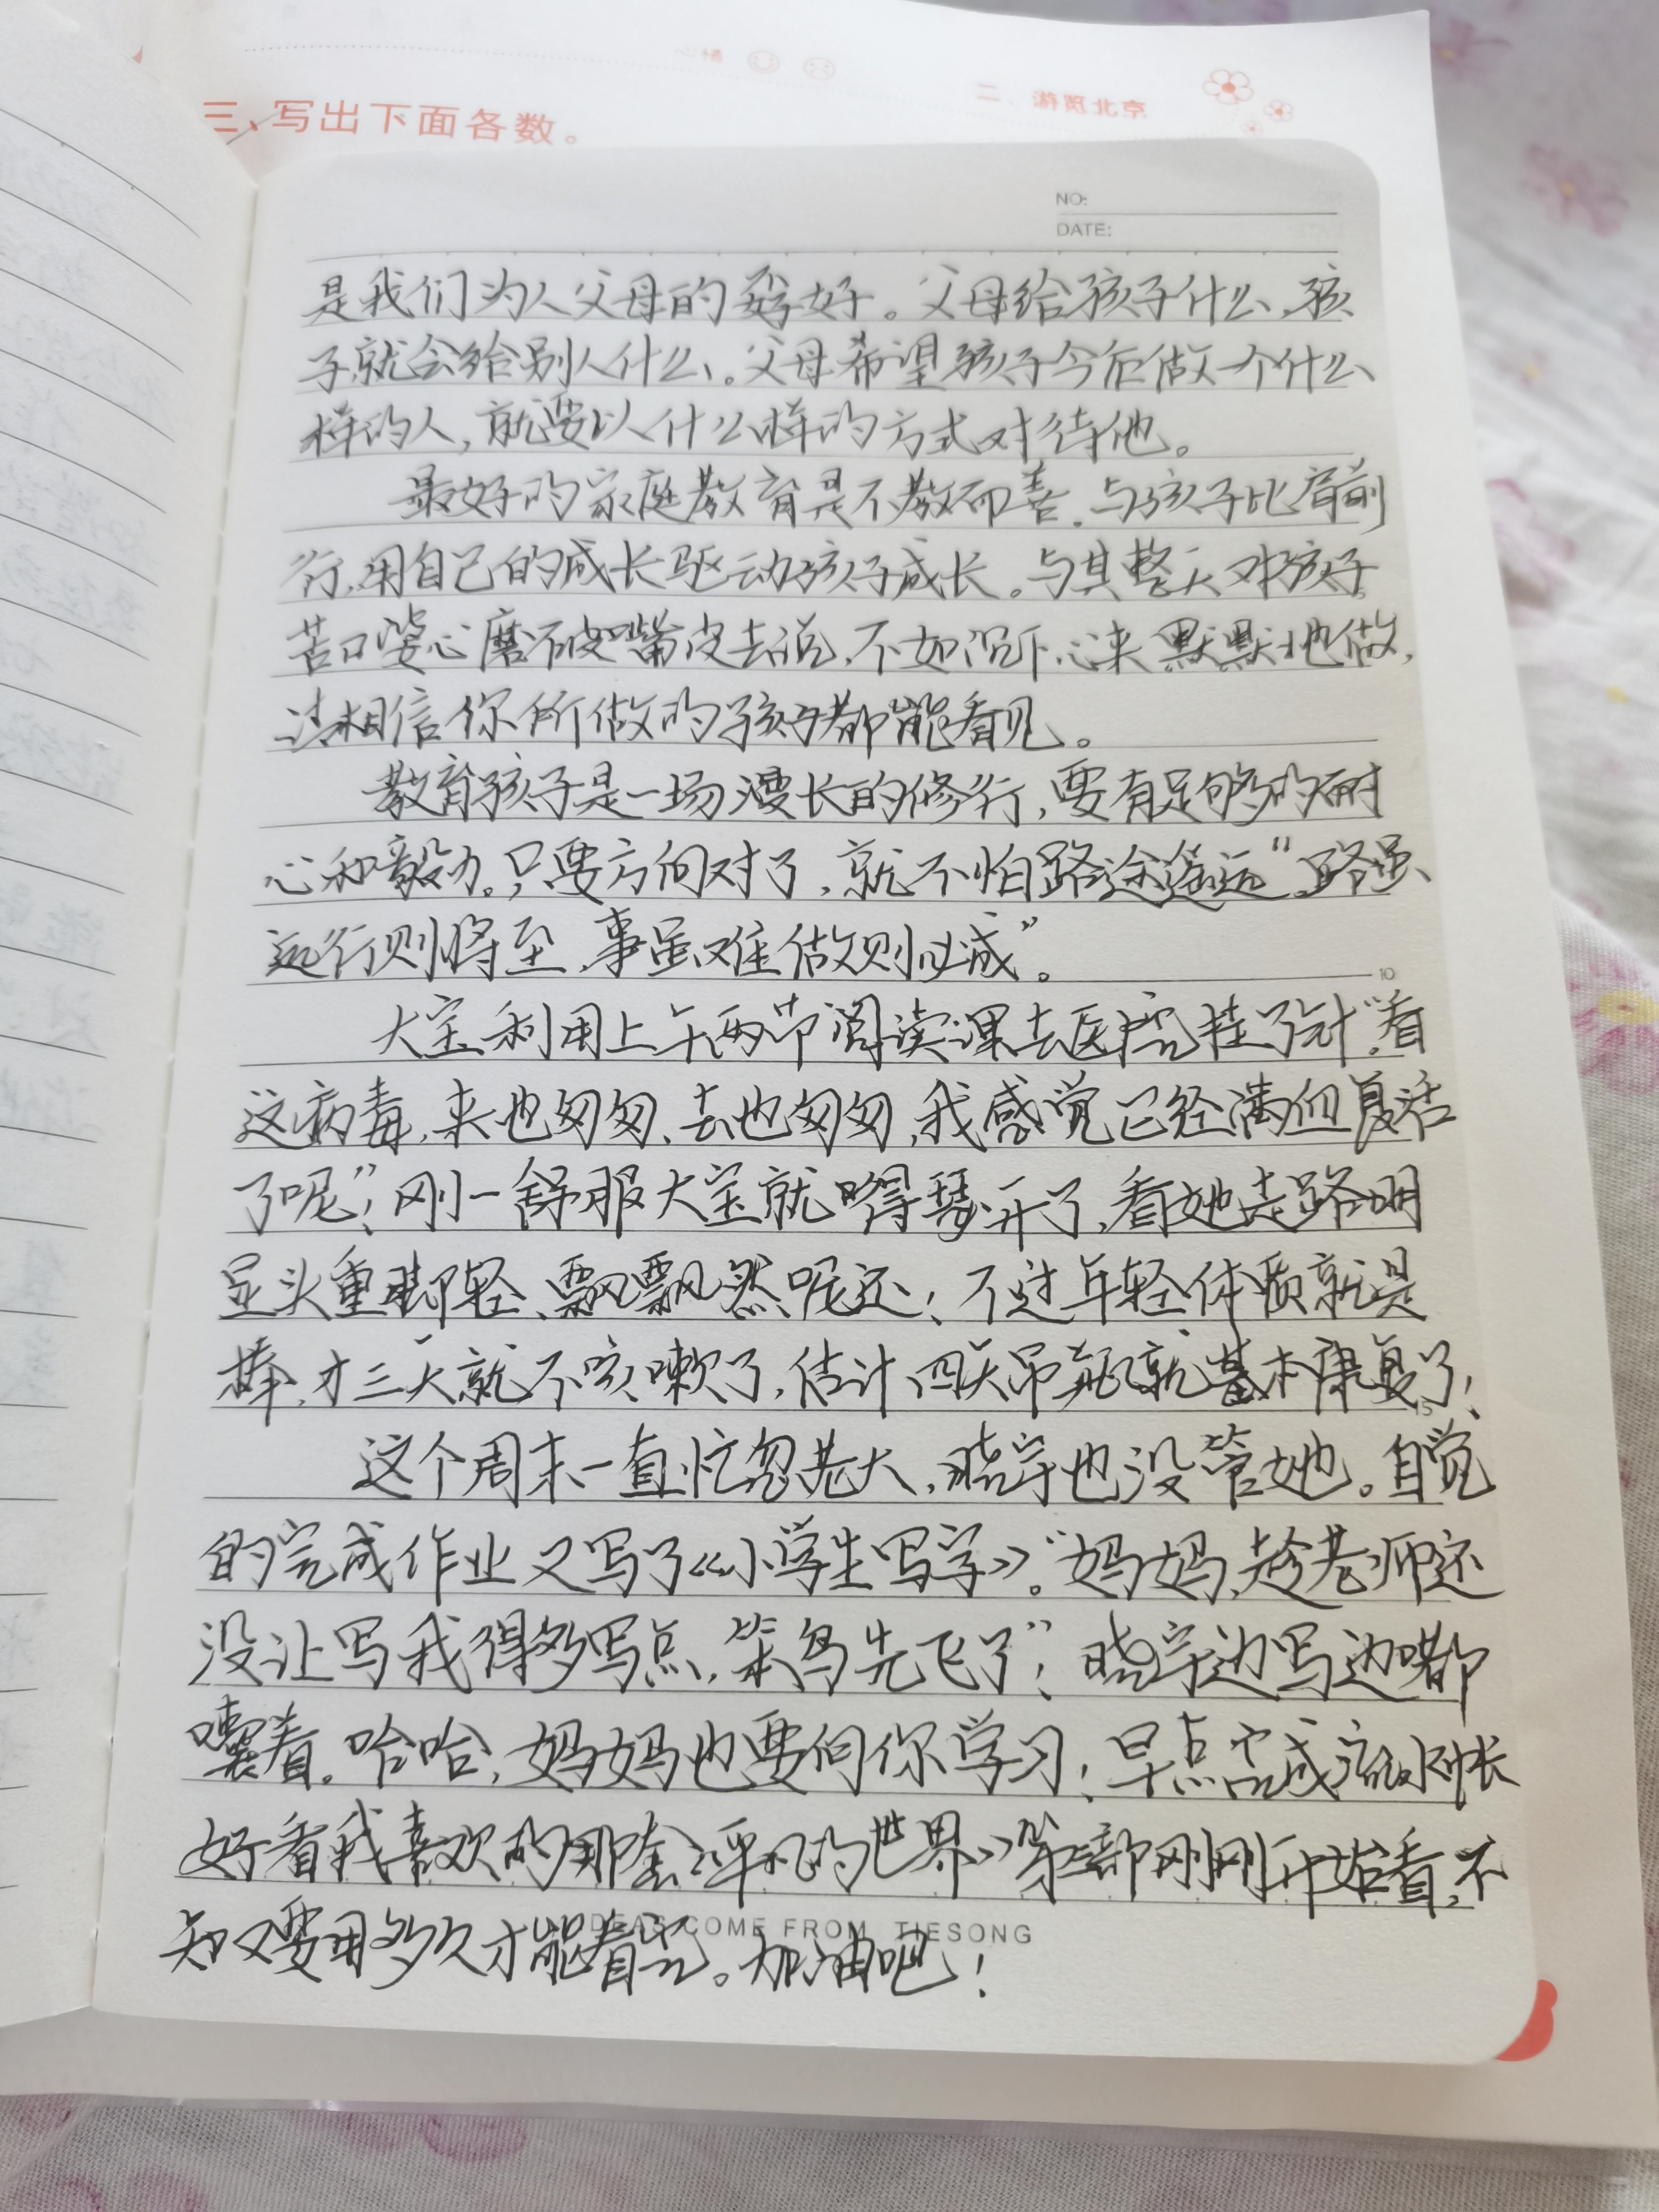 三、写出下面各数。
二、游览北京
NO:
DATE:
是我们为人父母的努好。父母给孩子什么,孩
子就会给别人什么。父母希望孩子今后做一个什么
样的人,就要以什么样的方式对待他。
最好的家庭教育是不教而善。与孩子比肩前
行,用自己的成长驱动孩子成长。与其整天对孩子
苦口婆心磨破嘴皮去说,不如沉下心来默默地做,
请相信你所做的孩子都能看见。
教育孩子是一场漫长的修行,要有足够的耐
心和毅力。只要方向对了,就不怕路途遥远“路虽
远行则将至,事虽难做则必成”。
10
大宝利用上午两节阅读课去医院挂了针“看
这病毒,来也匆匆、去也匆匆,我感觉已经满血复活
了呢”!刚一舒服大宝就嘚瑟开了,看她走路明
显头重脚轻、飘飘然呢还!不过年轻体质就是
棒,才三天就不咳嗽了,估计四天吊瓶就基本康复了!
15
这个周末一直忙忽老大,晓宇也没管她。自觉
的完成作业又写了《小学生写字》。“妈妈,趁老师还
没让写我得多写点,笨鸟先飞了”!晓宇边写边嘟
囔着。哈哈,妈妈也要向你学习!早点完成流水帐
好看我喜欢的那套《平凡的世界》第三部刚刚开始看,不
知又要用多久才能看完。加油吧!
IDEAS COME FROM TIESONG